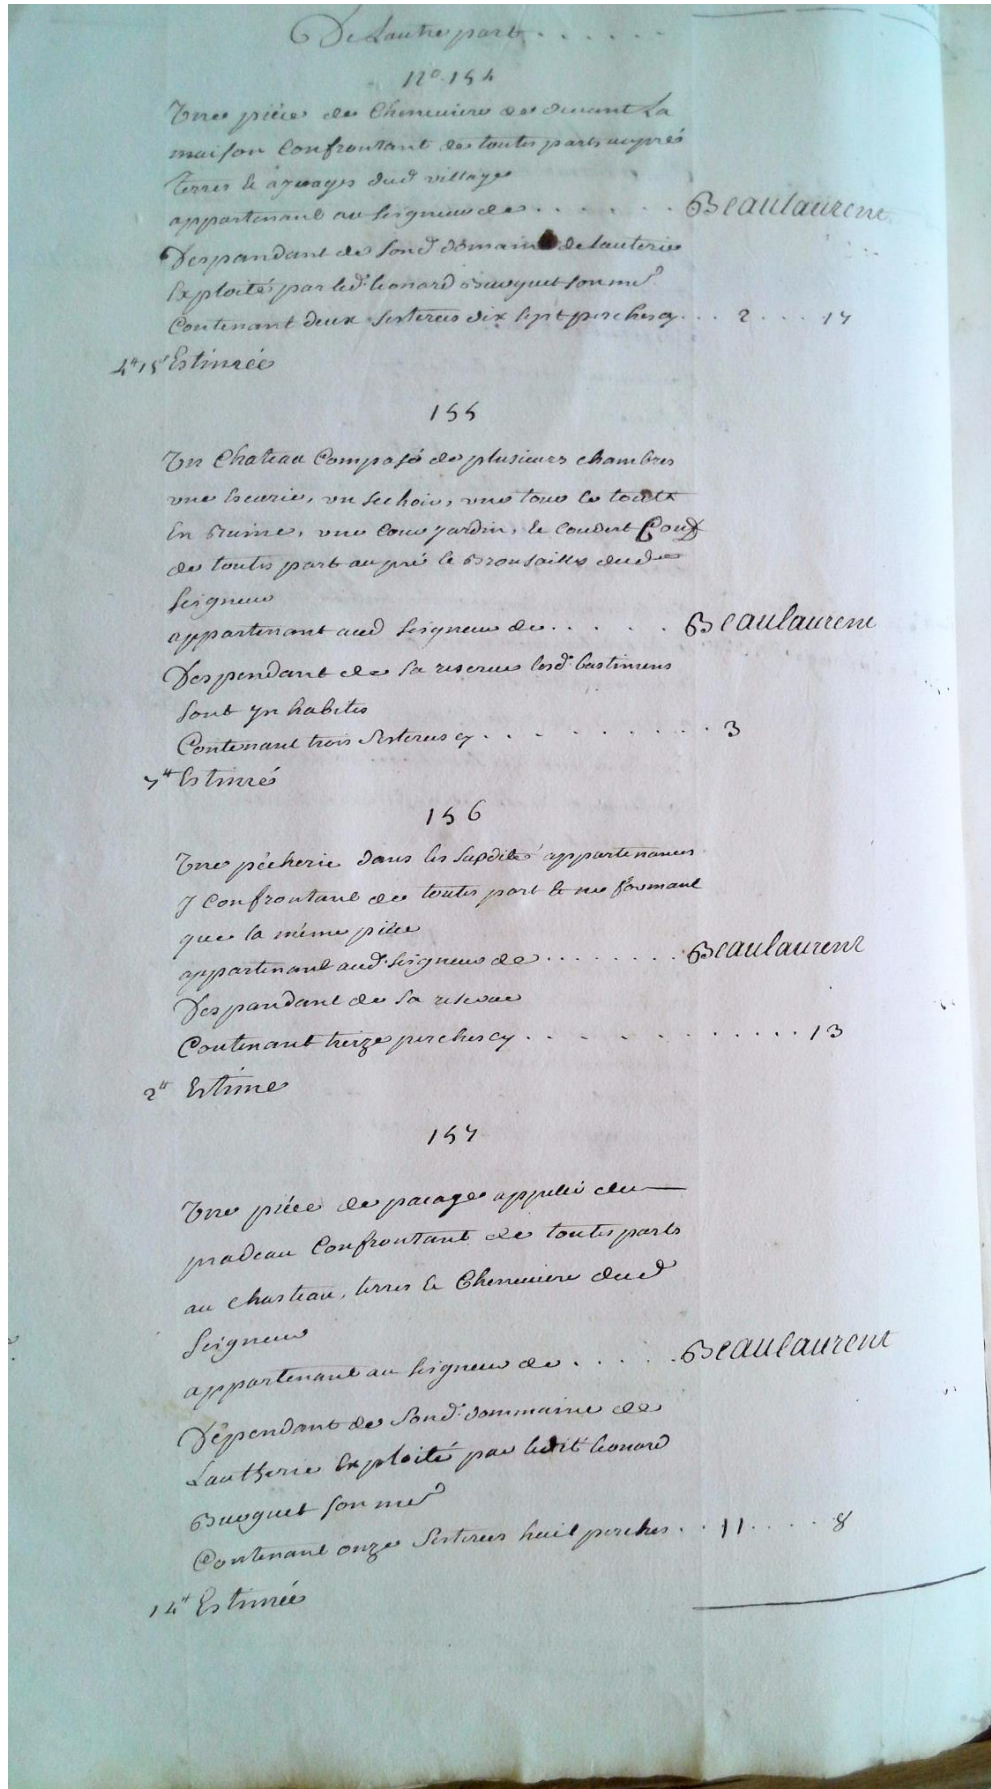 De Lautre part . . . . . .
N.o 154
Une piéce de Cheneviere de devant La
maison Confrontant de toutes parts auprés
terres & aguages dud village
appartenant au Seigneur de . . . . . . Beaulaurent
Despandant de Sond domaine de lauterie
Exploité par led. leonard Buoquet Son me
Contenant deux Sesterees dix Sept perches cy . . . 2 . . . . 17
4# 15s Estimée
155
Un Chateau Composé de plusieurs chambres
une Ecurie, un Sechoir, une tour le tout
En Ruine, une Cour jardin, & Coudert Conf
de toutes part au pré & Brousailles dud
Seigneur
appartenant aud Seigneur de . . . . . Beaulaurent
Despendant de Sa reserve lesd. bastimens
Sont yn habités
Contenant trois Sesterees cy . . . . . . . . . 3
7# Estimé
156
Une pêcherie dans les Susdites appartenances
y Confrontant de toutes part & ne formant
que la même piéce
appartenant aud. Seigneur de . . . . . . . . Beaulaurent
Despandant de Sa reserve
Contenant treize perches cy . . . . . . . . . . . . . 13
2# Estime
157
Une piéce de pacage appellé du
pradeau Confrontant de toutes parts
au chasteau, terres & Cheneviere dud
Seigneur
appartenant au Seigneur de . . . . . Beaulaurent
Dépendant de Sond. dommaine de
Lautherie Exploité par ledit leonard
Buoquet Son me
Contenant onze Sesterees huit perches . . 11 . . . . . 8
14# Estimée